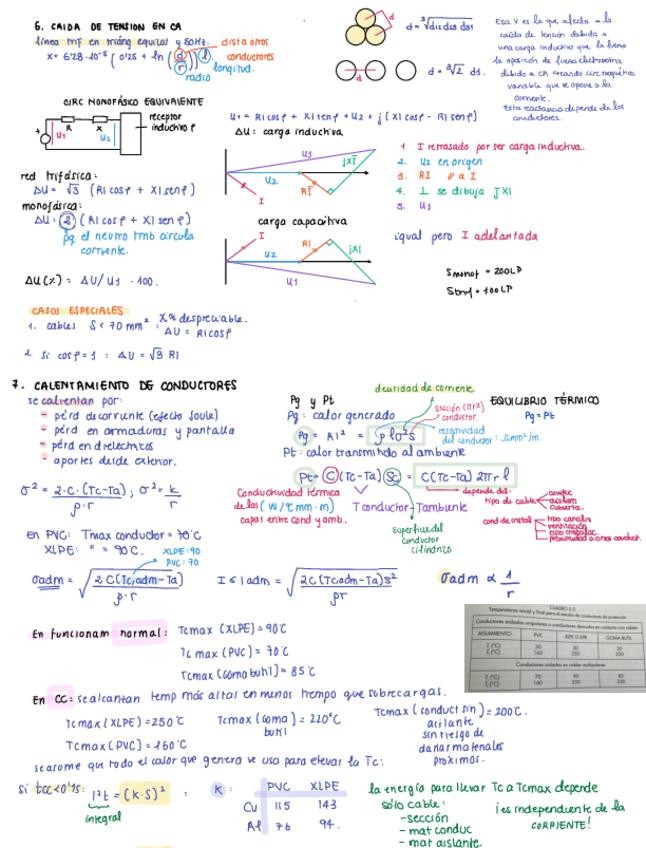 6. CAIDA DE TENSION EN CA
línea trif en triáng equilat y 50Hz.
X= 6'28·10⁻⁵ (0'25 + ln (d/r)) l
dist a otros
conductores
longitud.
radio
d = ∛d12 d23 d31
d = ∛2 d1.
d
Esa X es la que afecta a la
caída de tensión debida a
una carga inductiva que la
la oposición de fuerza electromotriz
debido a CA creando
variable que se opone a la
corriente.
Esta reactancia depende de los
conductores.
CIRC MONOFÁSICO EQUIVALENTE
R X
U1 U2
receptor
inductivo φ
U1 = RI cosφ + XI senφ + U2 + j (XI cosφ - RI senφ)
ΔU: carga inductiva
U1
jXI
U2
RI
I
1 I retrasado por ser carga inductiva.
2. U2 en origen
3. RI // a I
4. ⊥ se dibuja jXI
5. U1
red trifásica:
ΔU = √3 (RI cosφ + XI senφ)
monofásica:
ΔU = 2 (RI cosφ + XI senφ)
pq el neutro tmb circula
corriente.
carga capacitiva
I
RI
jXI
U2
U1
igual pero I adelantada
ΔU(%) = ΔU/U1 · 100.
Smonof = 200LP
Strif = 100LP
CASOS ESPECIALES
1. cables S < 70 mm² : X es despreciable.
ΔU = RI cosφ
2. Si cosφ = 1 : ΔU = √3 RI
7. CALENTAMIENTO DE CONDUCTORES
se calientan por:
- pérd de corriente (efecto Joule)
- pérd en armaduras y pantalla
- pérd en dieléctricos
- aportes desde exterior.
Pg y Pt
densidad de corriente.
EQUILIBRIO TÉRMICO
Pg = Pt
Pg: calor generado
sección (πr²)
conductor.
Pg = RI² = ρ l σ² S
resistividad
del conductor: Ωmm²/m.
Pt: calor transmitido al ambiente
Pt = C (Tc-Ta) Sc = C(Tc-Ta) 2πr l
σ² = 2·C·(Tc-Ta) / ρ·r ; σ² = k/r
Conductividad térmica
de las (W/℃ mm·m)
capas entre cond y amb.
Tconductor - Tambiente
superficie del
conductor
cilíndrico
depende de:
tipo de cable
conduc
aislam
cubierta.
cond de instal
tipo canaliz
ventilación
proximidad a otros conduct.
en PVC: Tmax conductor = 70℃
XLPE: " = 90℃.
XLPE: 90
PVC: 70
σadm = √(2C(Tc,adm-Ta) / ρ·r)
I ≤ Iadm = √(2C(Tcadm-Ta)S² / ρr)
σadm ∝ 1/r
CUADRO 5.2
Temperaturas inicial y final para el estudio de conductores de protección
Conductores aislados unipolares o conductores desnudos en contacto con cables
AISLAMIENTO PVC GOMA BUTIL
30 30 30
160 250 220
Conductores aislados en cables multipolares
70 90 85
160 250 220
En funcionam normal: Tcmax (XLPE) = 90℃
Tc max (PVC) = 70℃
Tcmax (Goma butil) = 85℃
En CC: se alcanzan temp más altas en menos tiempo que sobrecargas.
Tcmax (XLPE) = 250℃
Tcmax (goma
butil) = 220℃
Tcmax (conduct sin
aislante
sin riesgo de
dañar materiales
próximos.) = 200℃.
Tcmax (PVC) = 160℃
se asume que todo el calor que genera se usa para elevar la Tc:
si tcc<0'1s: I²t = (K·S)²
integral
K:
PVC XLPE
Cu 115 143
Al 76 94.
la energía para llevar Tc a Tcmax depende
sólo cable:
- sección
- mat conduc
- mat aislante.
¡es independiente de la
CORRIENTE!